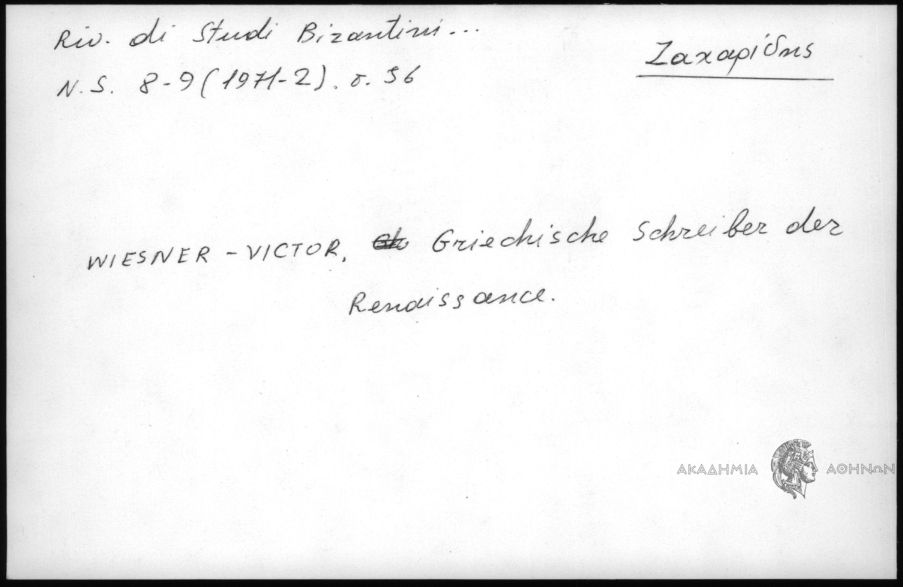 Riv. di Studi Bizantini...
Ζαχαρίδης
N.S. 8-9 (1971-2). σ. 56
WIESNER - VICTOR, Griechische Schreiber der
Renaissance.
ΑΚΑΔΗΜΙΑ ΑΘΗΝΩΝ